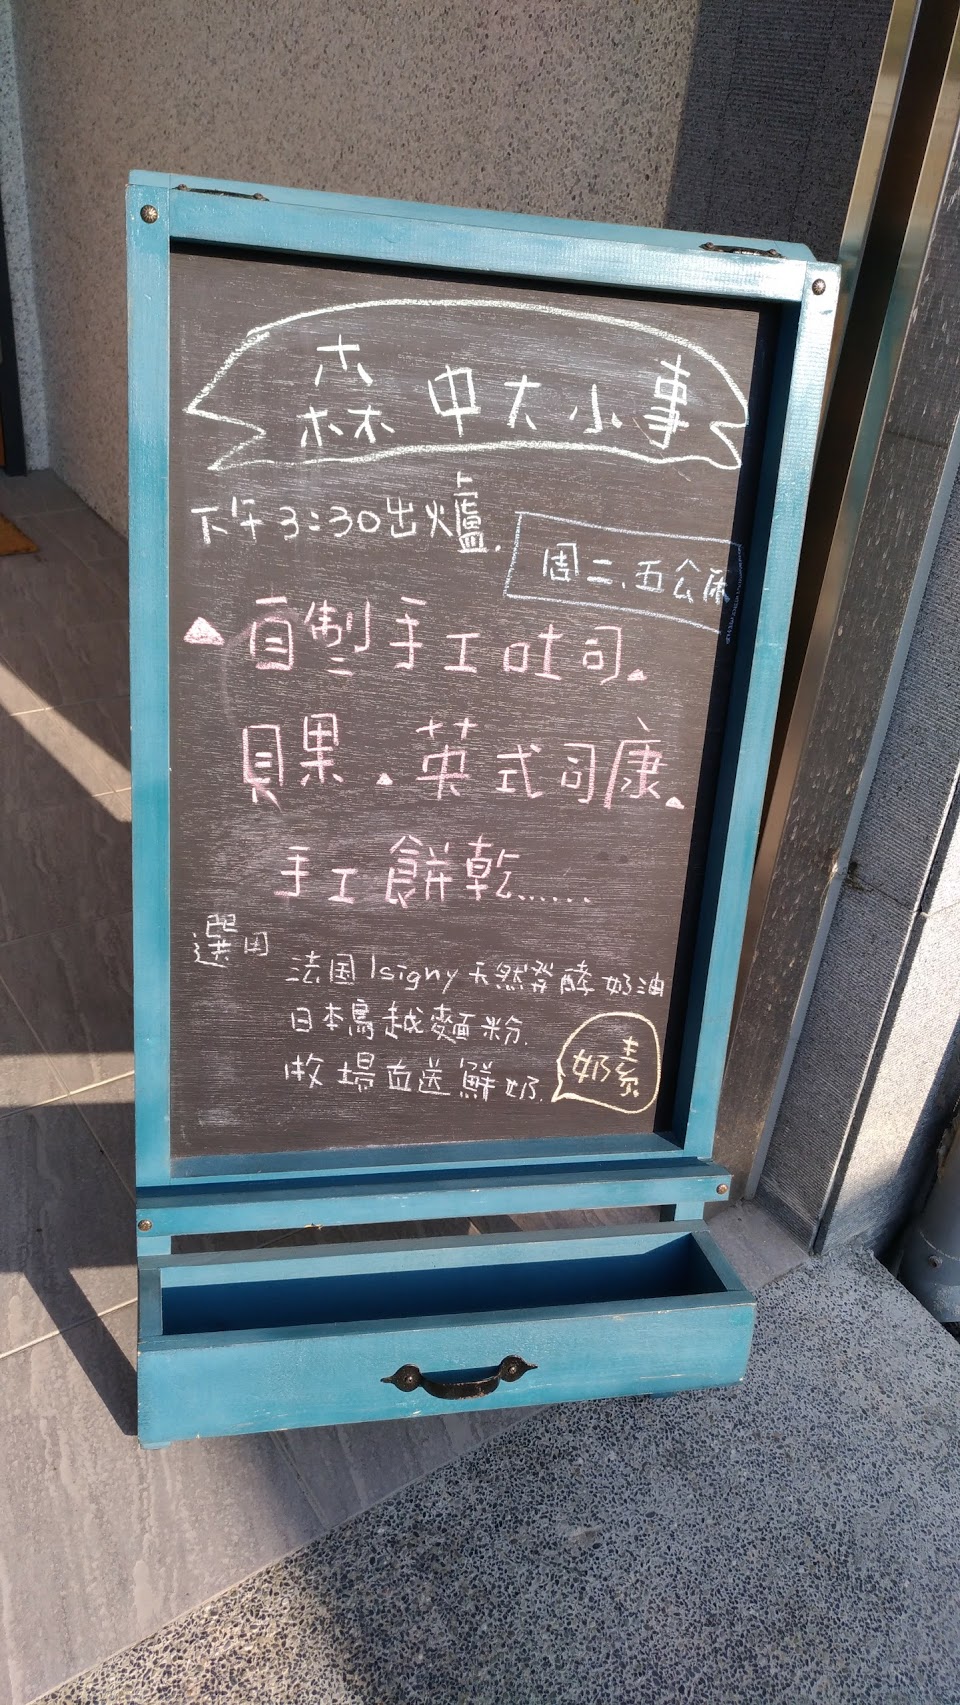 森中大小事
下午3:30出爐.
周二.五公休
自製手工吐司
貝果 英式司康
手工餅乾......
選用
法国Isigny天然發酵奶油
日本鳥越麵粉.
牧場直送鮮奶.
奶素